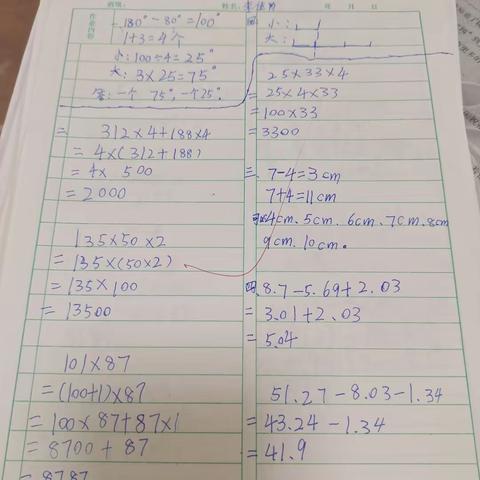 作业内容
姓名:
月
日
180°-80°=100°
1+3=4个
小:100÷4=25°
大:3×25=75°
答:一个75°,一个25°.
二
312×4+188×4
=4×(312+188)
=4×500
=2000
135×50×2
=135×(50×2)
=135×100
=13500
101×87
=(100+1)×87
=100×87+87×1
=8700+87
=8787
图
小:
大:
25×33×4
=25×4×33
=100×33
=3300
三、7-4=3cm
7+4=11cm
4cm、5cm、6cm、7cm、8cm
9cm、10cm.
四、8.7-5.69+2.03
=3.01+2.03
=5.04
51.27-8.03-1.34
=43.24-1.34
=41.9